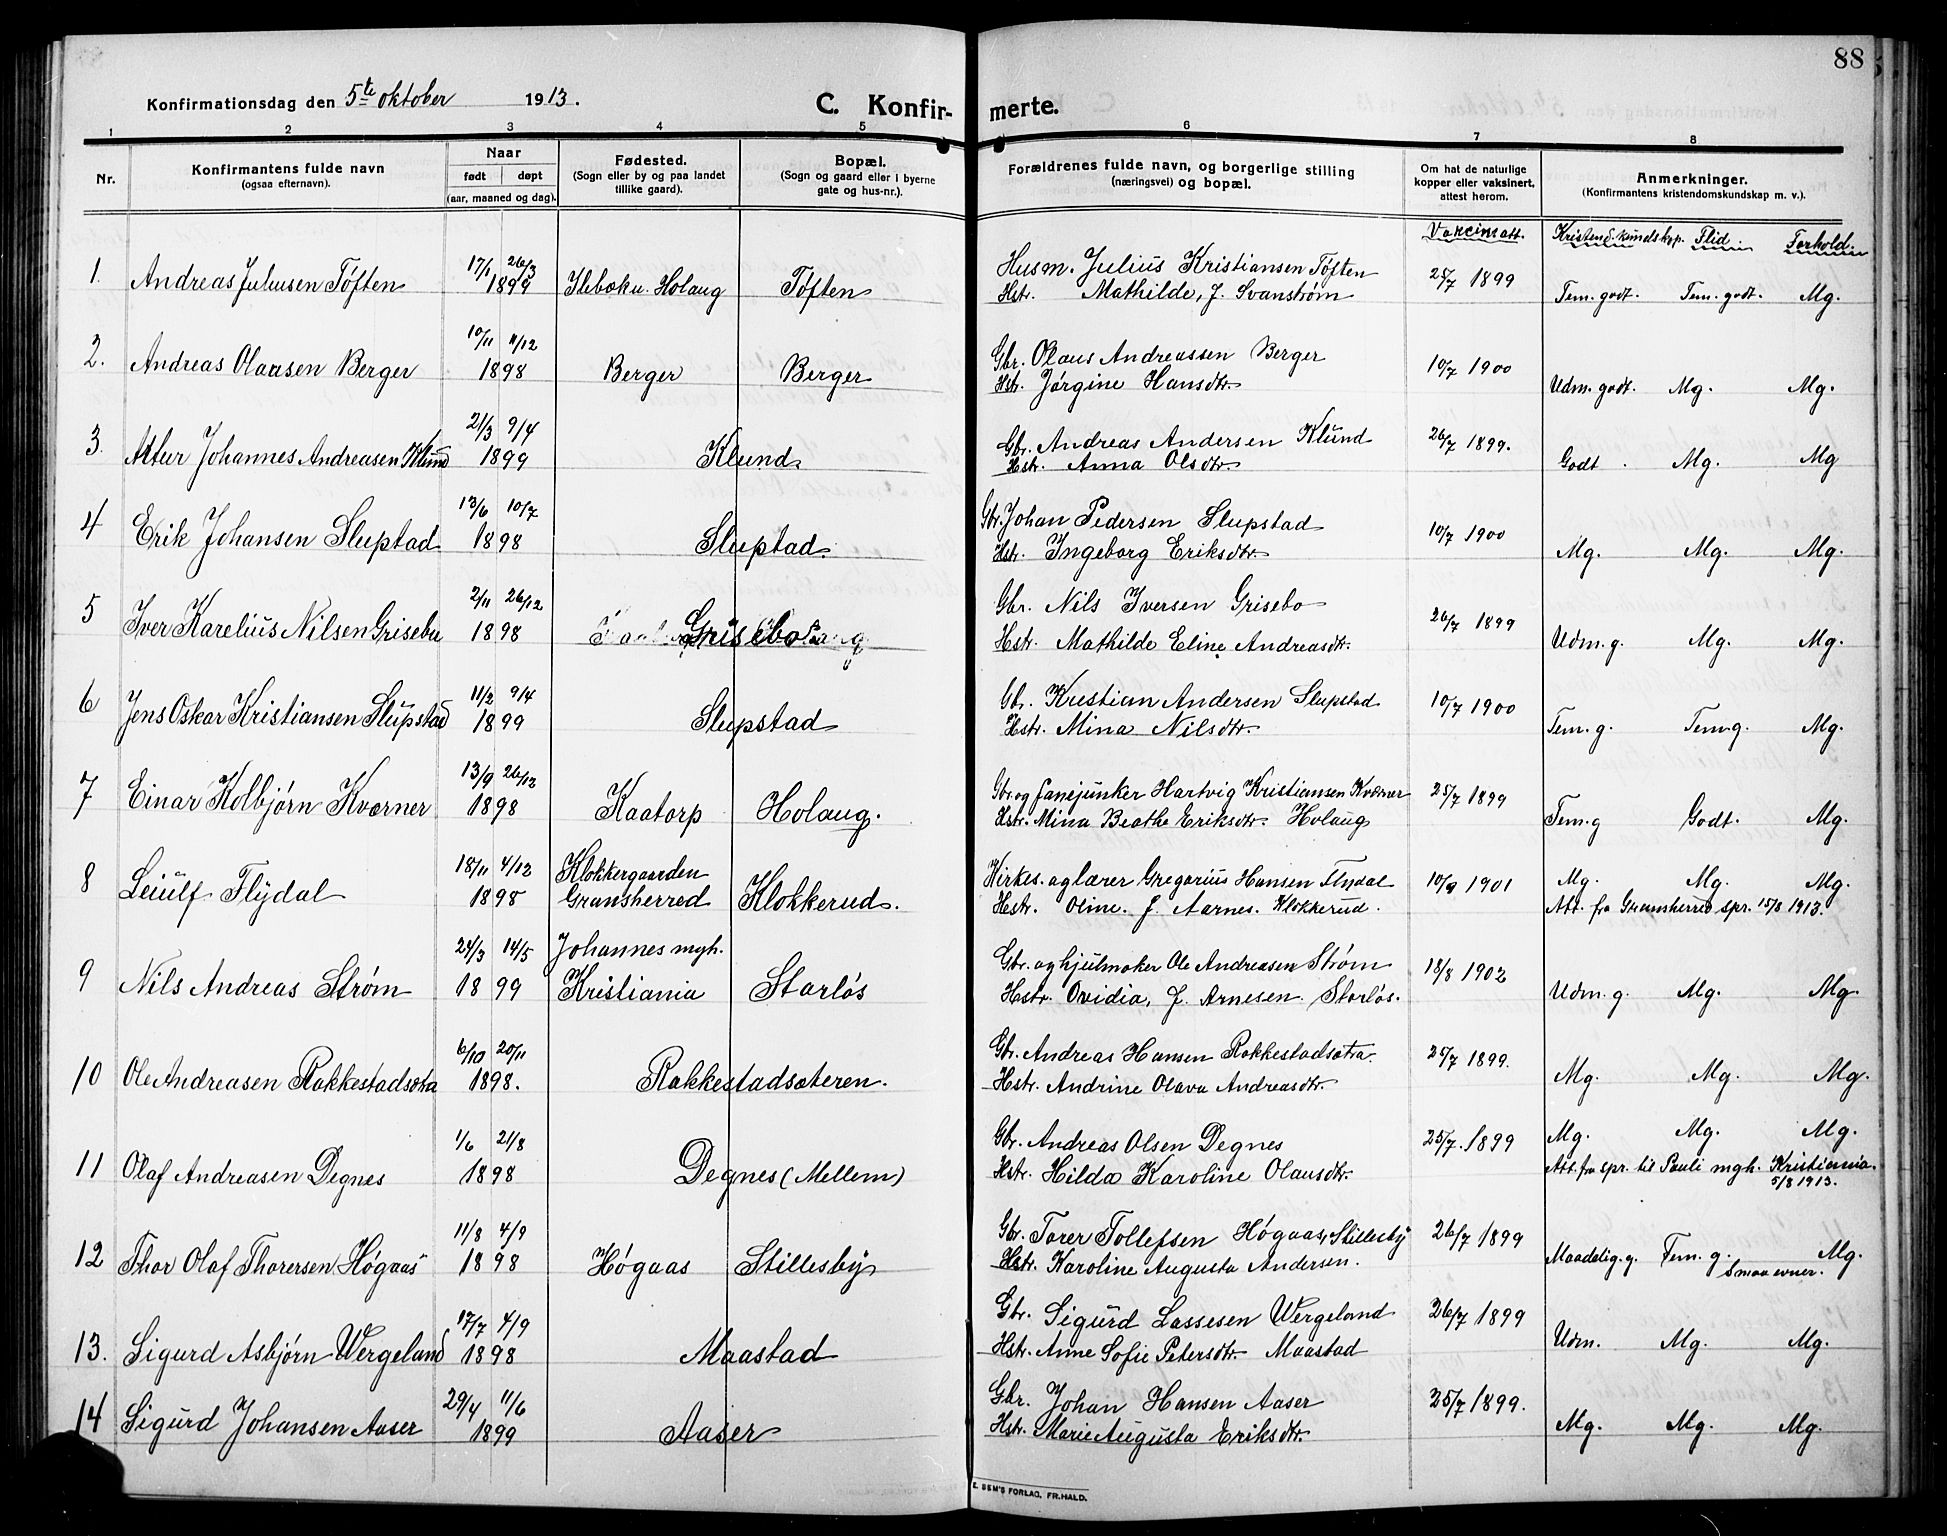 88
Konfirmationsdag den 5te oktober 1913.
C. Konfir- merte.
1 2 3 4 5 6 7 8
Nr.
Konfirmantens fulde navn
(ogsaa efternavn).
Naar
født døpt
(aar, maaned og dag).
Fødested.
(Sogn eller by og paa landet
tillike gaard).
Bopæl.
(Sogn og gaard eller i byerne
gate og hus-nr.).
Forældrenes fulde navn, og borgerlige stilling
(næringsvei) og bopæl.
Om hat de naturlige
kopper eller vaksinert,
attest herom.
Anmerkninger.
(Konfirmantens kristendomskundskap m. v.).
Vaccinatt. Kristend. kundskap. Flid. Forhold.
17/1 26/3 Husm. Julius Kristiansen Tøften
1. Andreas Juliusen Tøften 1899 Ileboku. Holaug Tøften Hstr. Mathilde, f. Svanstrøm 25/7 1899 Tem. godt. Tem. godt. Mg.
10/11 11/12 Gbr. Olaus Andreassen Berger
2. Andreas Olausen Berger 1898 Berger Berger Hstr. Jørgine Hansdtr. 10/7 1900 Udm. godt. Mg. Mg.
21/3 9/4 Gbr. Andreas Andersen Klund
3. Johannes Andreasen Klund 1899 Klund Hstr. Anna Olsdtr. 26/7 1899. Godt. Mg. Mg
13/6 10/7 Gbr. Johan Pedersen Slupstad
4 Erik Johansen Sluptad 1898 Sluptad. Hstr. Ingeborg Eriksdtr. 10/7 1900 Mg. Mg. Mg.
2/11 26/12 Gbr. Nils Iversen Grisebo
5 Iver Karelius Nilsen Grisebu 1898 Grisebo Hstr. Mathilde Eline Andreasdtr. 26/7 1899 Udm. g. Mg. Mg.
11/2 9/4 Gbr. Kristian Andersen Slupstad
6 Jens Oskar Kristiansen Slupstad 1899 Slupstad Hstr. Mina Nilsdtr. 10/7 1900 Tem. g. Tem. g. Mg.
13/9 26/12 Gbr. og fanejunker Hartvig Kristiansen Kværner
7 Einar Kolbjørn Kværner 1898 Kaatorp Holaug. Hstr. Mina Beathe Eriksdtr. Holaug 25/7 1899 Tem. g Godt. Mg.
18/11 4/12 Klokkergaarden Kirkes. og lærer Gregorius Hansen Flydal Mg. Mg. Mg.
8 Leiulf Flydal 1898 Gransherred Klokkerud. Hstr. Oline. f. Aarnes. Klokkerud. 10/9 1901 Att. fra Gransherred spr. 15/8 1913.
24/3 14/5 Johannes mgh. Gbr. og hjulmaker Ole Andreasen Strøm
9 Nils Andreas Strøm 1899 Kristiania Storløs Hstr. Ovidia, f. Arnesen. Storløs. 18/8 1902 Udm. g. Mg. Mg.
6/10 20/11 Gbr. Andreas Hansen Rakkestadsætra
10 Ole Andreasen Rakkestadsætra 1898. Rakkestadsæteren. Hstr. Andrine Olava Andreasdtr. 25/7 1899. Mg. Mg. Mg.
1/6 21/8 Gbr. Andreas Olsen Degnes Mg. Mg. Mg.
11 Olaf Andreasen Degnes 1898 Degnes (Mellem) Hstr. Hilda Karoline Olausdtr. 25/7. 1899 Att. fra spr. til Pauli mgh. Kristiania.
5/8 1913.
11/8 4/9 Gbr. Torer Tollefsen Høgaas, Stillesby
12 Thor Olaf Thorersen Høgaas 1898 Høgaas Stillesby Hstr. Karoline Augusta Andersen. 26/7 1899 Maadelig. g. Tem. g. Smaa evner. Mg.
17/7 4/9 Gbr. Sigurd Lassesen Wergeland
13. Sigurd Asbjørn Wergeland 1898 Maastad Hstr. Anne Sofie Petersdtr. Maastad 26/7 1899 Udm. Mg. Mg.
29/4 11/6 Gbr. Johan Hansen Aaser
14 Sigurd Johansen Aaser 1899 Aaser Hstr. Marie Augusta Eriksdtr. 25/7 1899. Mg. Mg. Mg.
E. SEM'S FORLAG, FR.HALD.